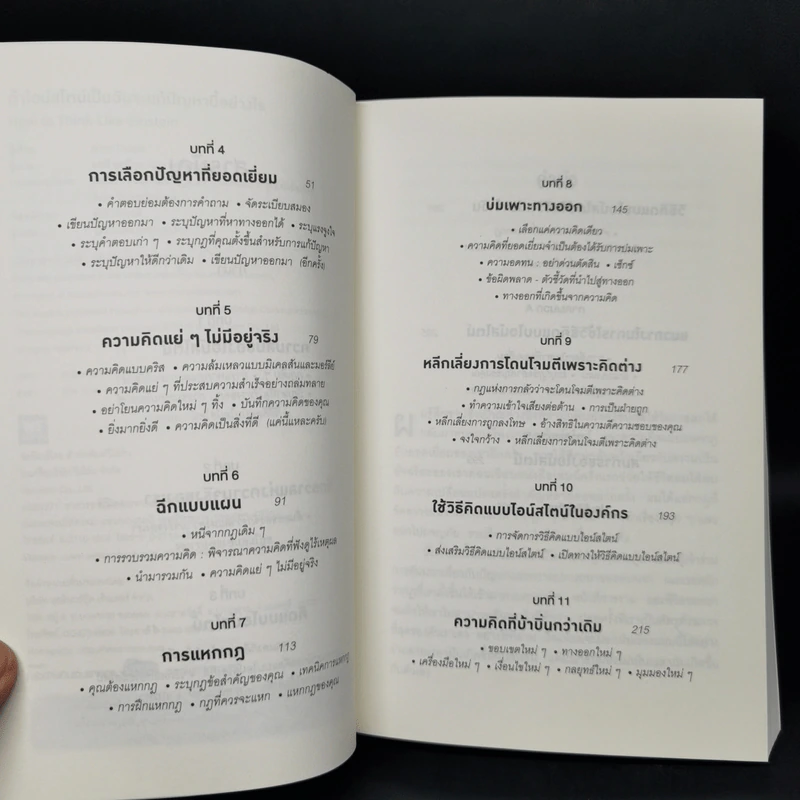 บทที่ 4
การเลือกปัญหาที่ยอดเยี่ยม 51
• คำตอบย่อมต้องการคำถาม • จัดระเบียบสมอง
• เขียนปัญหาออกมา • ระบุปัญหาที่หาทางออกได้ • ระบุแรงจูงใจ
• ระบุคำตอบเก่า ๆ • ระบุกฎที่คุณตั้งขึ้นสำหรับการแก้ปัญหา
• ระบุปัญหาให้ดีกว่าเดิม • เขียนปัญหาออกมา (อีกครั้ง)
บทที่ 5
ความคิดแย่ ๆ ไม่มีอยู่จริง 79
• ความคิดแบบคริส • ความล้มเหลวแบบมิเคลสันและมอร์ลีย์
• ความคิดแย่ ๆ ที่ประสบความสำเร็จอย่างถล่มทลาย
• อย่าโยนความคิดใหม่ ๆ ทิ้ง • บันทึกความคิดของคุณ
• ยิ่งมากยิ่งดี • ความคิดเป็นสิ่งที่ดี (แค่นี้แหละครับ)
บทที่ 6
ฉีกแบบแผน 91
• หนีจากกฎเดิม ๆ
• การรวบรวมความคิด : พิจารณาความคิดที่ฟังดูไร้เหตุผล
• นำมารวมกัน • ความคิดแย่ ๆ ไม่มีอยู่จริง
บทที่ 7
การแหกกฎ 113
• คุณต้องแหกกฎ • ระบุกฎข้อสำคัญของคุณ • เทคนิคการแหกกฎ
• การฝึกแหกกฎ • กฎที่ควรจะแหก • แหกกฎของคุณ
บทที่ 8
บ่มเพาะทางออก 145
• เลือกแค่ความคิดเดียว
• ความคิดที่ยอดเยี่ยมจำเป็นต้องได้รับการบ่มเพาะ
• ความอดทน : อย่าด่วนตัดสิน • เซ็กซ์
• ข้อผิดพลาด - ตัวชี้วัดที่นำไปสู่ทางออก
• ทางออกที่เกิดขึ้นจากความคิด
บทที่ 9
หลีกเลี่ยงการโดนโจมตีเพราะคิดต่าง 177
• กฎแห่งการกลัวว่าจะโดนโจมตีเพราะคิดต่าง
• ทำความเข้าใจเสียงต่อต้าน • การเป็นฝ่ายถูก
• หลีกเลี่ยงการถูกลงโทษ • อ้างสิทธิในความดีความชอบของคุณ
• จงใจกว้าง • หลีกเลี่ยงการโดนโจมตีเพราะคิดต่าง
บทที่ 10
ใช้วิธีคิดแบบไอน์สไตน์ในองค์กร 193
• การจัดการวิธีคิดแบบไอน์สไตน์
• ส่งเสริมวิธีคิดแบบไอน์สไตน์ • เปิดทางให้วิธีคิดแบบไอน์สไตน์
บทที่ 11
ความคิดที่บ้าบิ่นกว่าเดิม 215
• ขอบเขตใหม่ ๆ • ทางออกใหม่ ๆ
• เครื่องมือใหม่ ๆ • เงื่อนไขใหม่ ๆ • กลยุทธ์ใหม่ ๆ • มุมมองใหม่ ๆ